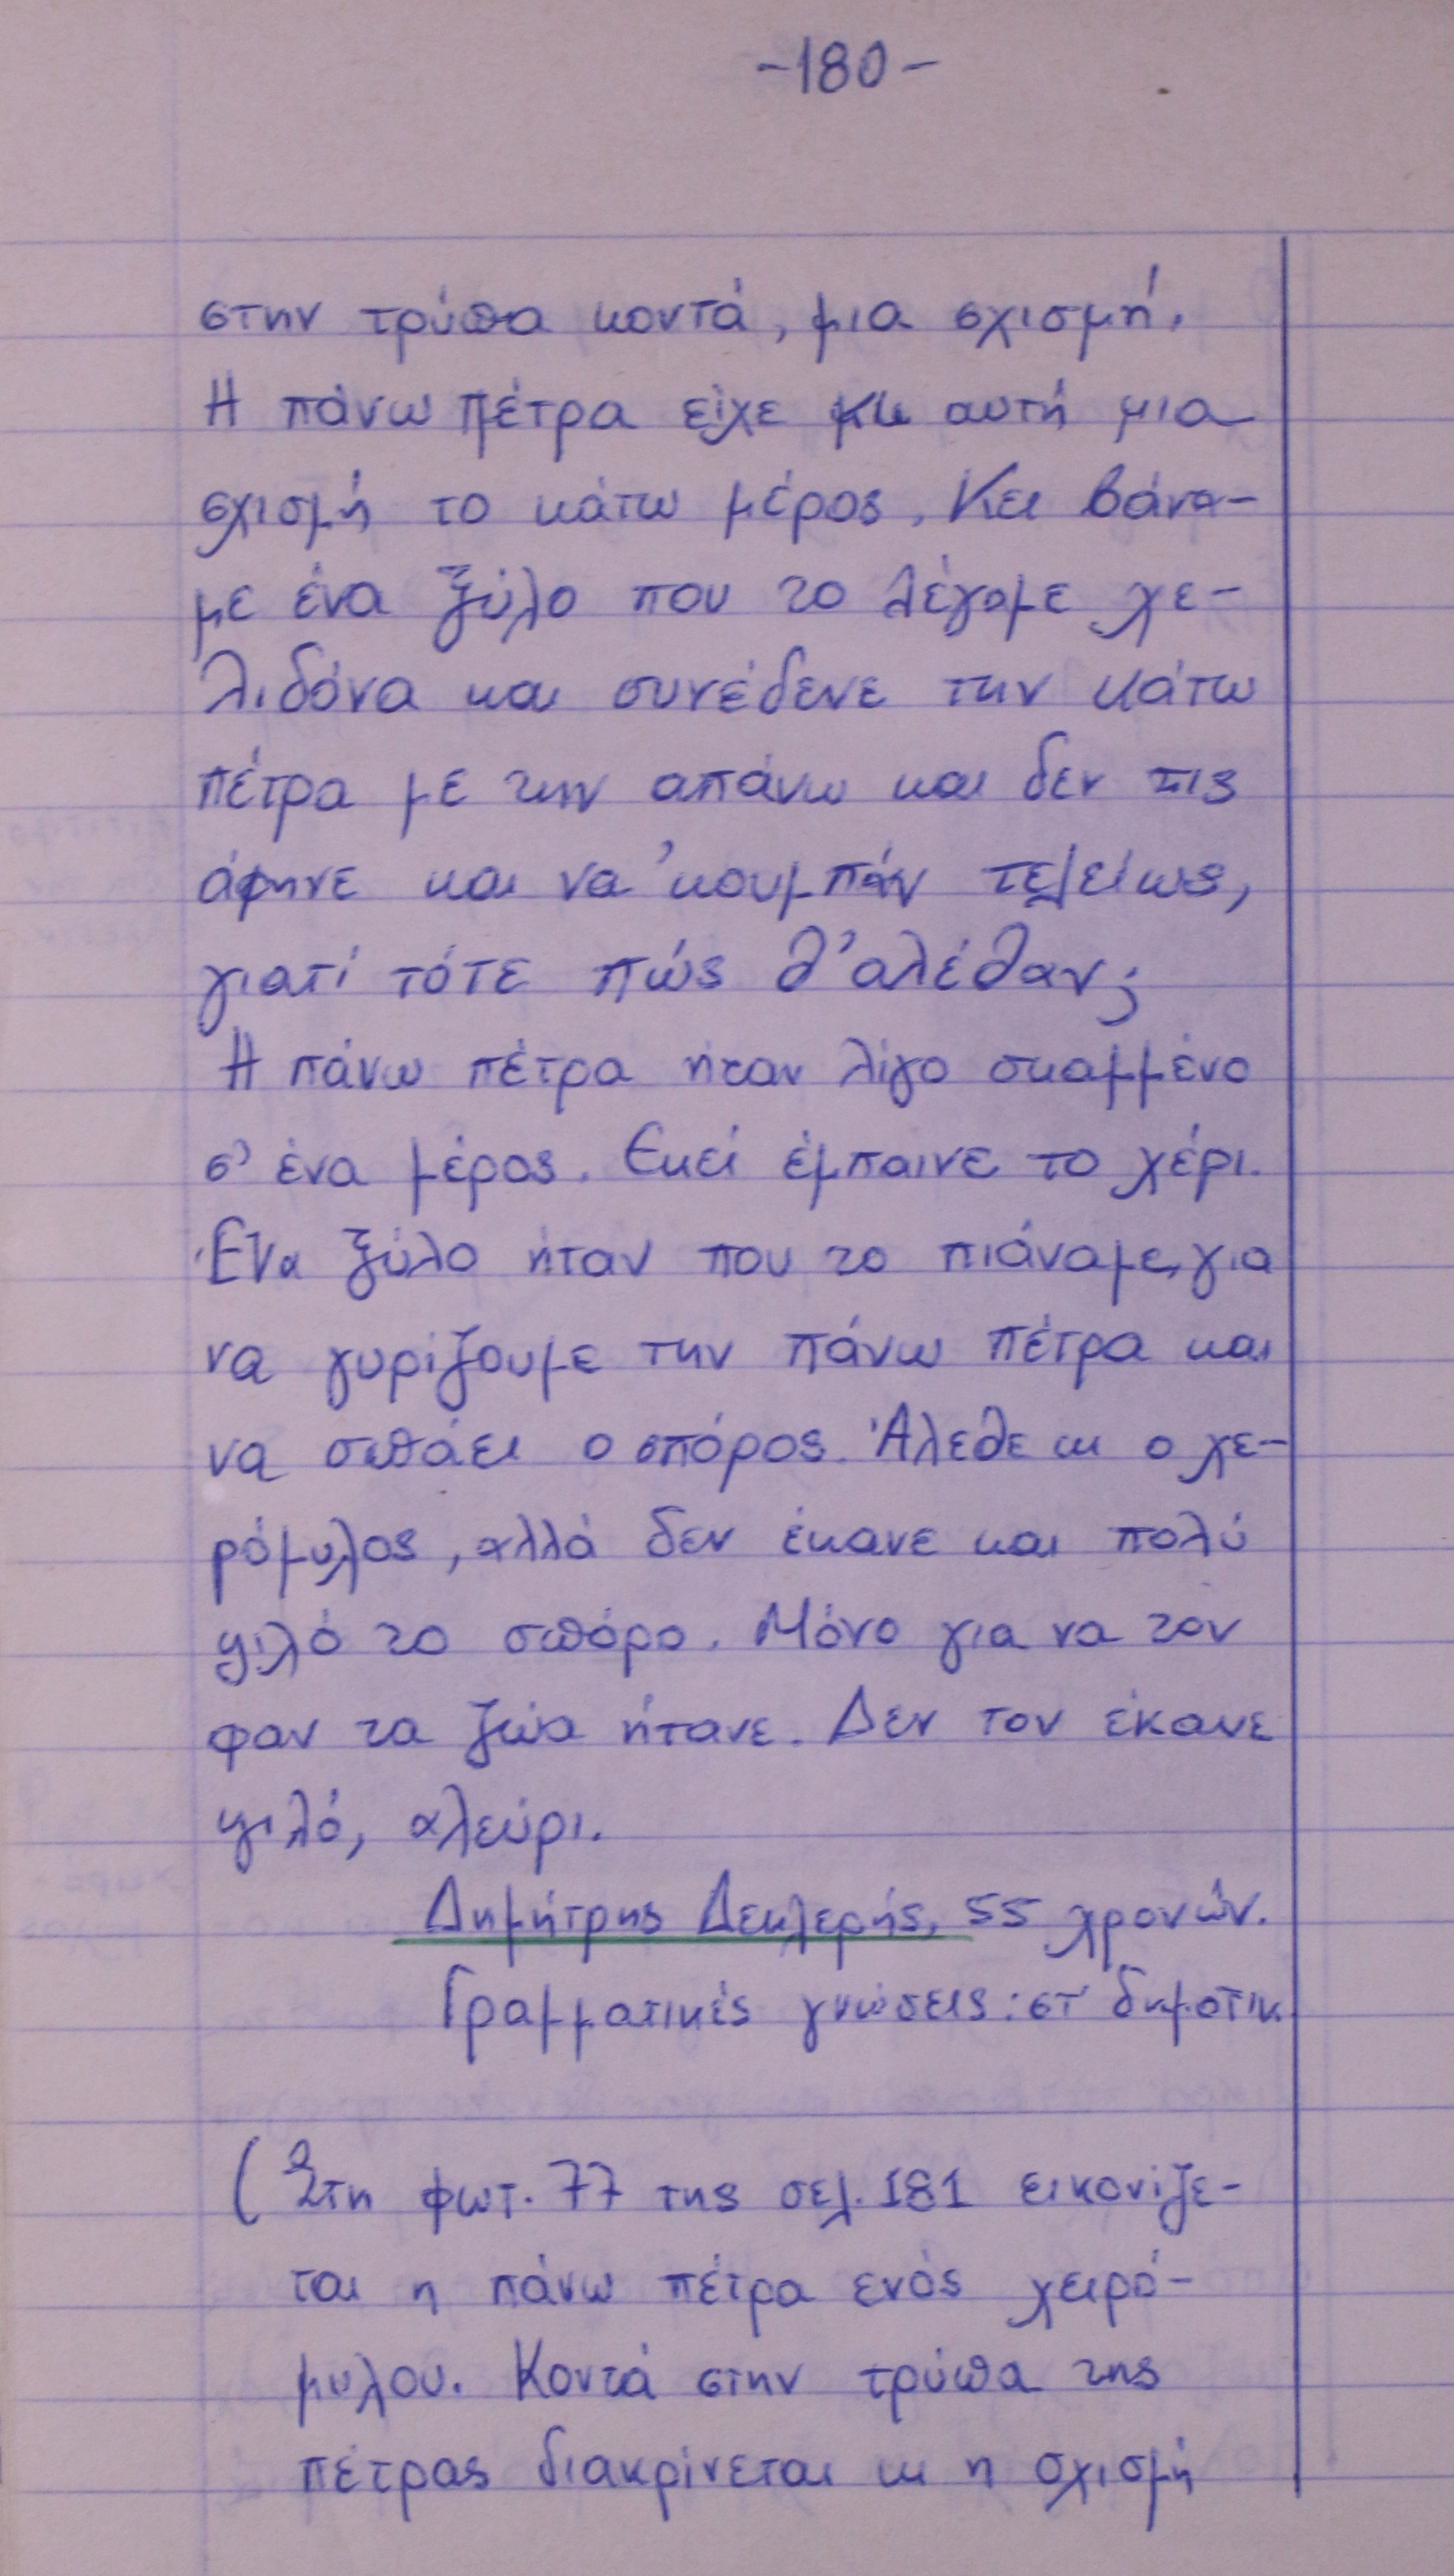 -180-
στην τρύπα κοντά, μια σχισμή.
Η πάνω πέτρα είχε κι αυτή μια
σχισμή το κάτω μέρος. Και βάνα-
με ένα ξύλο που το λέγαμε χε-
λιδόνα και συνέδενε την κάτω
πέτρα με την απάνω και δεν τις
άφηνε και να 'κουμπάν τελείως,
γιατί τότε πώς θ' αλέθαν;
Η πάνω πέτρα ήταν λίγο σκαμμένο
σ' ένα μέρος. Εκεί έμπαινε το χέρι.
Ένα ξύλο ήταν που το πιάναμε, για
να γυρίζουμε την πάνω πέτρα και
να σπάει ο σπόρος. Άλεθε κι ο χε-
ρόμυλος, αλλά δεν έκανε και πολύ
ψιλό το σπόρο. Μόνο για να τον
φαν τα ζώα ήτανε. Δεν τον έκανε
ψιλό, αλεύρι.
Δημήτρης Δεκλερής, 55 χρονών.
Γραμματικές γνώσεις: στ' δημοτικ.
(Στη φωτ. 77 της σελ. 181 εικονίζε-
ται η πάνω πέτρα ενός χειρό-
μυλου. Κοντά στην τρύπα της
πέτρας διακρίνεται κι η σχισμή